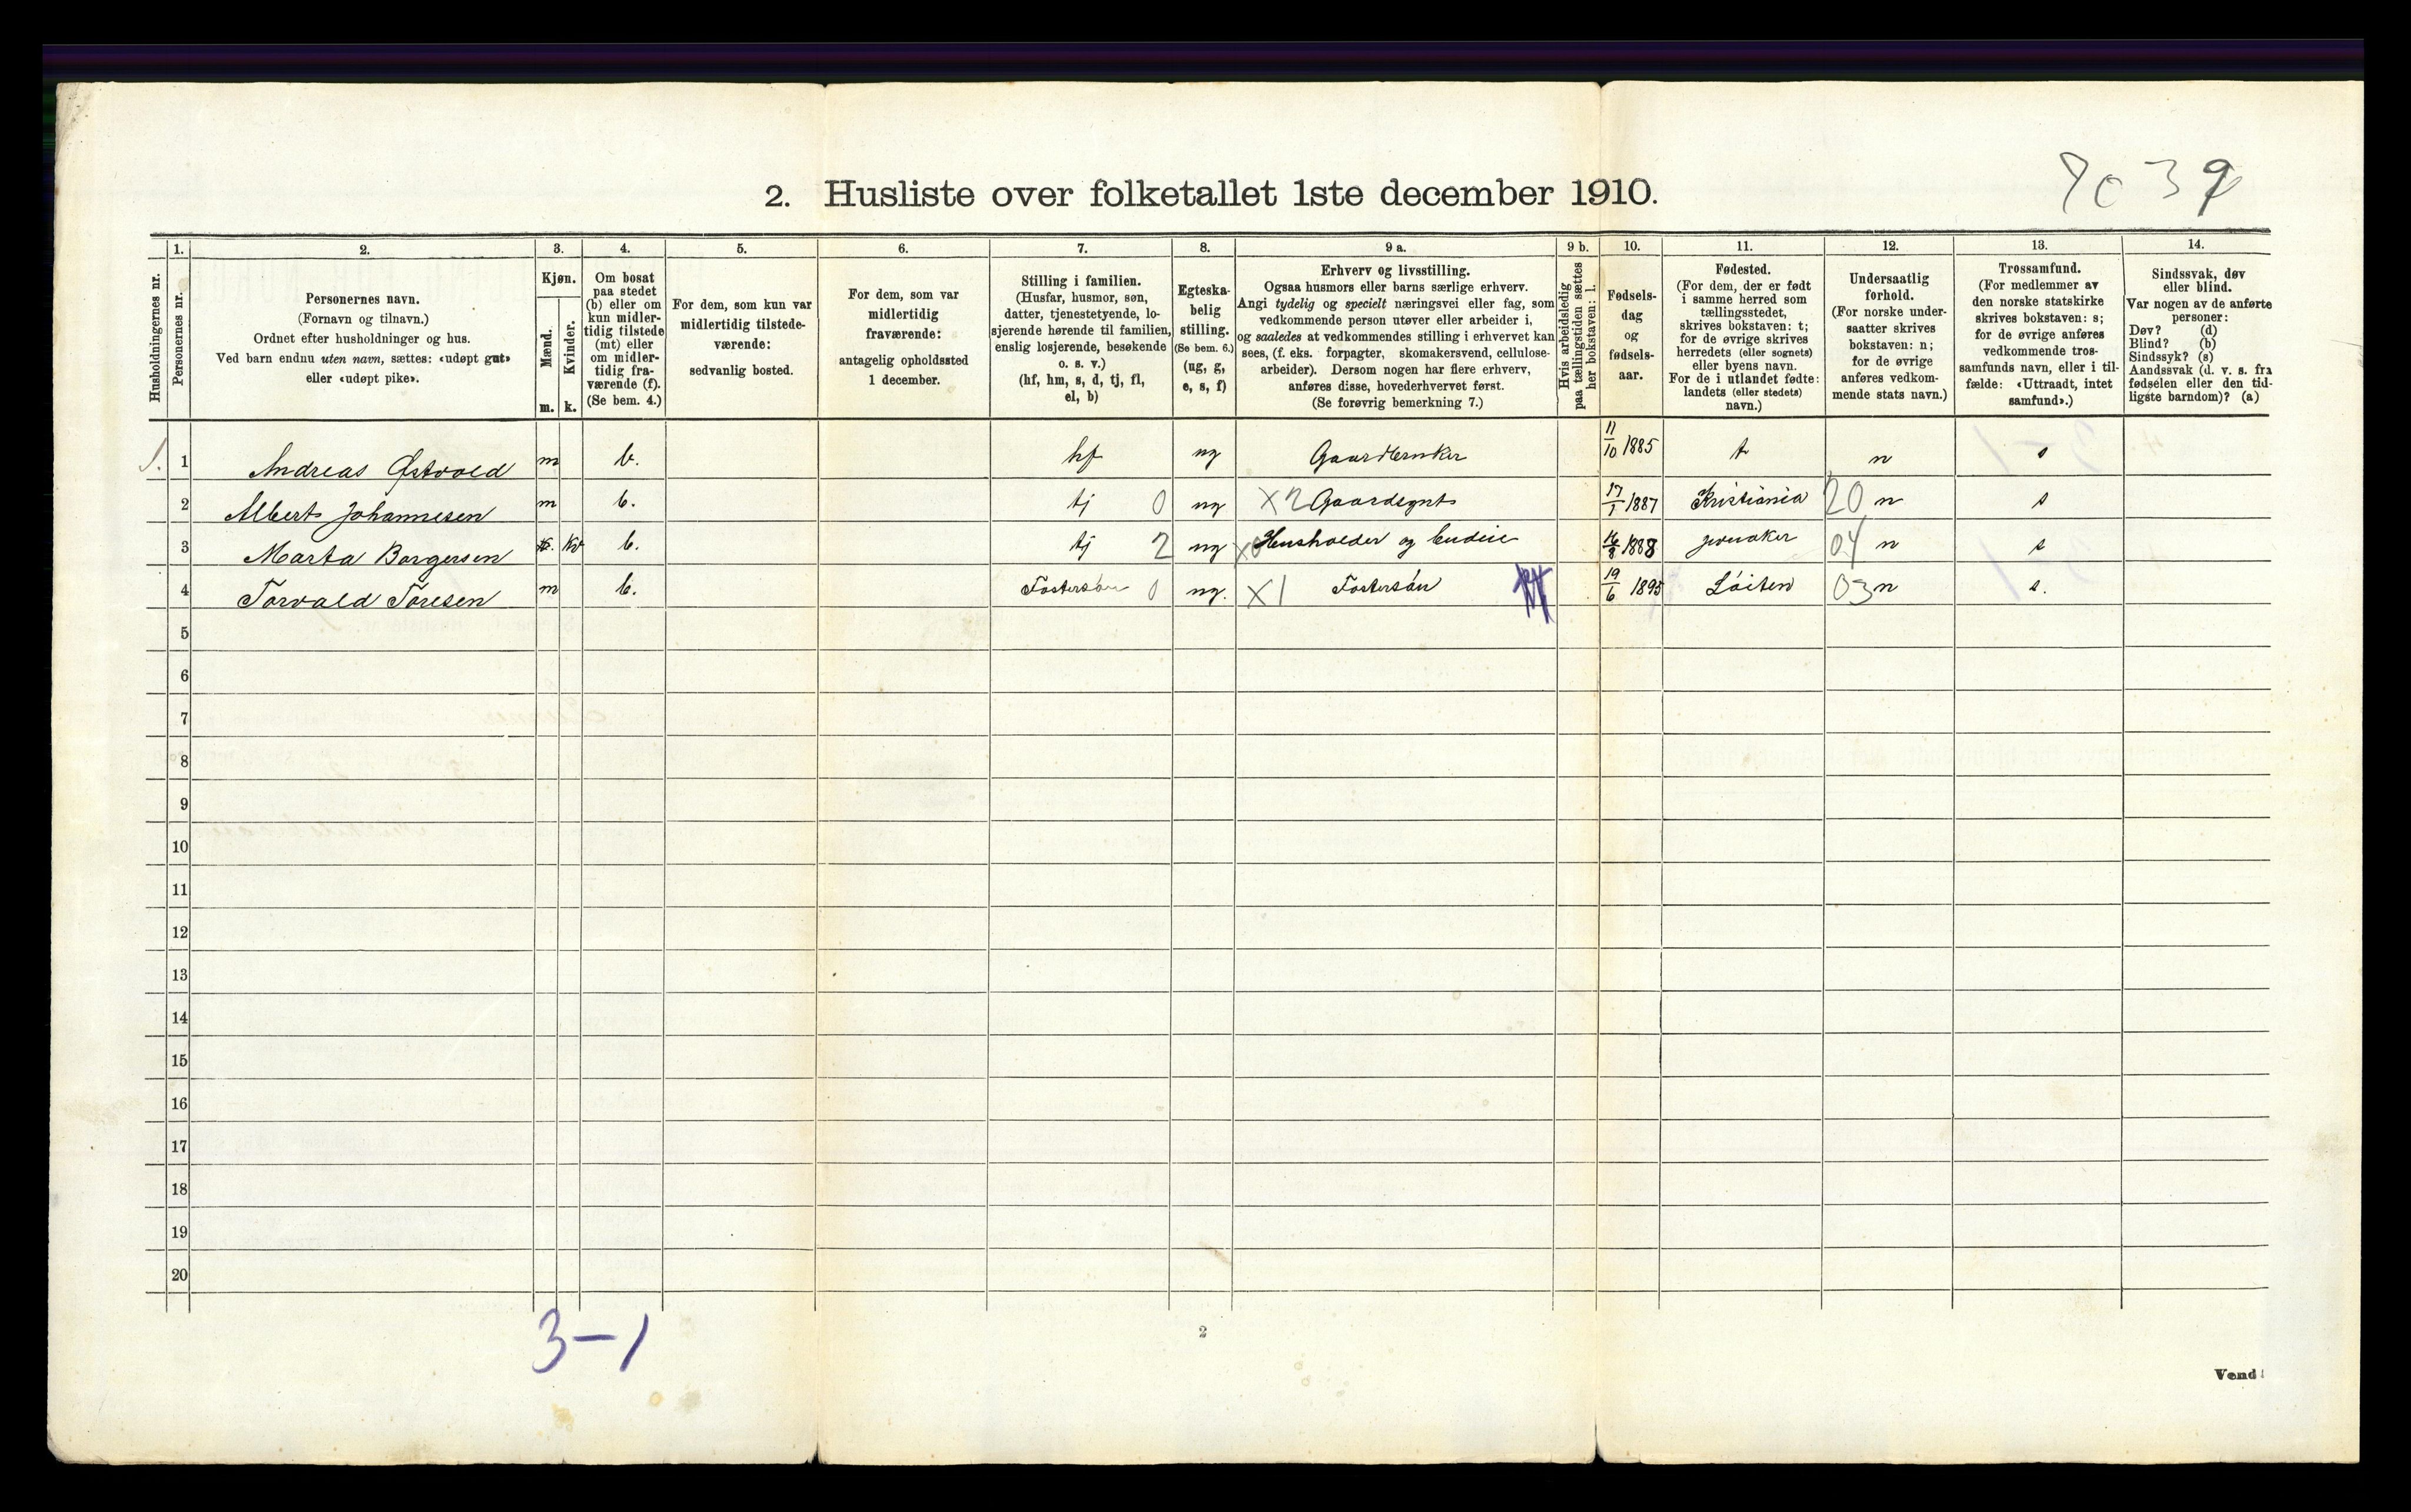 7039
2. Husliste over folketallet 1ste december 1910.
Husholdningernes nr.
1.
Personernes nr.
2.
Personernes navn.
(Fornavn og tilnavn.)
Ordnet efter husholdninger og hus.
Ved barn endnu uten navn, sættes: «udøpt gut»
eller «udøpt pike».
3.
Kjøn.
Mænd.
Kvinder.
m. k.
4.
Om bosat
paa stedet
(b) eller om
kun midler-
tidig tilstede
(mt) eller
om midler-
tidig fra-
værende (f).
(Se bem. 4.)
5.
For dem, som kun var
midlertidig tilstede-
værende:
sedvanlig bosted.
6.
For dem, som var
midlertidig
fraværende:
antagelig opholdssted
1 december.
7.
Stilling i familien.
(Husfar, husmor, søn,
datter, tjenestetyende, lo-
sjerende hørende til familien,
enslig losjerende, besøkende
o. s. v.)
(hf, hm, s, d, tj, fl,
el, b)
8.
Egteska-
belig
stilling.
(Se bem. 6.)
(ug, g,
e, s, f)
9 a.
Erhverv og livsstilling.
Ogsaa husmors eller barns særlige erhverv.
Angi tydelig og specielt næringsvei eller fag, som
vedkommende person utøver eller arbeider i,
og saaledes at vedkommendes stilling i erhvervet kan
sees, (f. eks. forpagter, skomakersvend, cellulose-
arbeider). Dersom nogen har flere erhverv,
anføres disse, hovederhvervet først.
(Se forøvrig bemerkning 7.)
9 b.
Hvis arbeidsledig
paa tællingstiden sættes
her bokstaven: l.
10.
Fødsels-
dag
og
fødsels-
aar.
11.
Fødested.
(For dem, der er født
i samme herred som
tællingsstedet,
skrives bokstaven: t;
for de øvrige skrives
herredets (eller sognets)
eller byens navn.
For de i utlandet fødte:
landets (eller stedets)
navn.)
12.
Undersaatlig
forhold.
(For norske under-
saatter skrives
bokstaven: n;
for de øvrige
anføres vedkom-
mende stats navn.)
13.
Trossamfund.
(For medlemmer av
den norske statskirke
skrives bokstaven: s;
for de øvrige anføres
vedkommende tros-
samfunds navn, eller i til-
fælde: «Uttraadt, intet
samfund».)
14.
Sindssvak, døv
eller blind.
Var nogen av de anførte
personer:
Døv? (d)
Blind? (b)
Sindssyk? (s)
Aandssvak (d. v. s. fra
fødselen eller den tid-
ligste barndom)? (a)
1. 1 Andreas Østvold m b. hf ug Gaardbruker 11/10 1885 t n s
2 Albert Johannesen m b. tj 0 ug X2 Gaardsgut 17/1 1887 Kristiania 20 n s
3 Marta Borgersen kv b. tj 2 ug X0 Husholder og budeie 16/8 1888 Jevnaker 04 n s
4 Torvald Toresen m b. Fostersön 0 ug. X1 Fostersön 19/6 1895 Löiten 03 n s.
5
6
7
8
9
10
11
12
13
14
15
16
17
18
19
20
3-1
2
Vend!